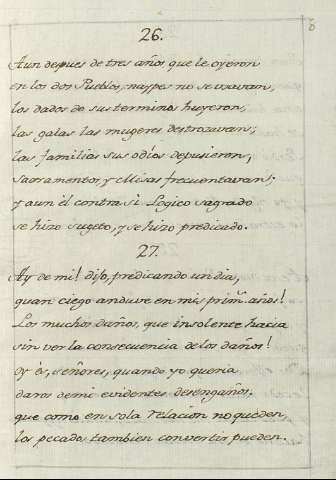 8
26.
Aun despues de tres años, que le oyeron
en los dos Pueblos, naypes no se vsavan,
los dados de sus terminos huyeron,
las galas las mugeres destrozavan;
las familias sus odios depusieron,
Sacramentos, y Misas frecuentavan;
y aun él contra si Logico sagrado
se hizo sugeto, y se hizo predicado.
27.
Ay de mi! dijo, predicando un dia,
quan ciego anduve en mis prim.s años!
Los muchos daños, que insolente hacia
sin ver la consecuencia de los daños!
Oy és, señores, quando yo queria
daros de mi evidentes desengaños,
que como en sola relacion no queden,
los pecados tambien convertir pueden.